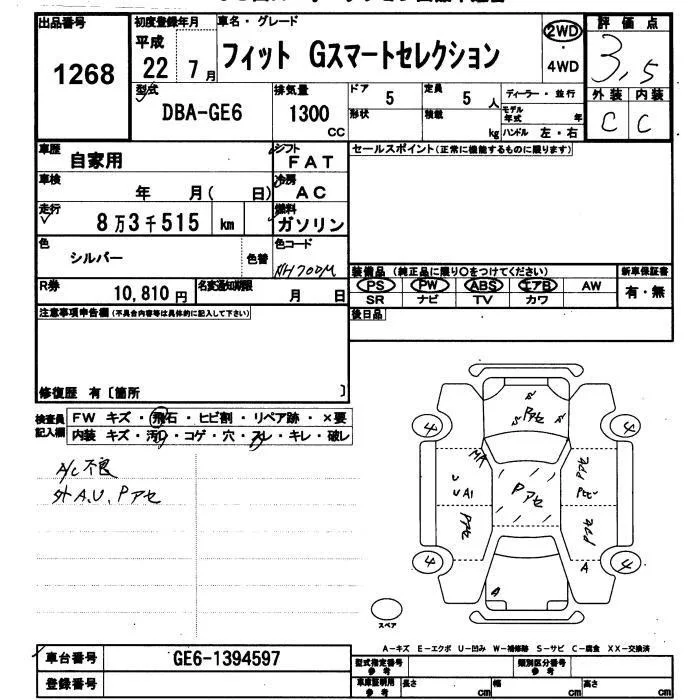 出品番号 1268
初度登録年月 平成 22 年 7 月
車名・グレード フィット Gスマートセレクション
2WD ・ 4WD
評価点 3.5
外装 内装
C C
型式 DBA-GE6
排気量 1300 CC
ドア 5 定員 5 人
形状 積載 kg
ディーラー・並行
モデル年式 年
ハンドル 左・右
車歴 自家用
シフト FAT
車検 年 月( 日)
冷房 AC
走行 8万3千515 km
燃料 ガソリン
色 シルバー 色替
色コード NH700M
R券 10,810 円
名変通知期限 月 日
セールスポイント(正常に機能するものに限ります)
装備品 (純正品に限り○をつけてください)
PS PW ABS エアB AW
SR ナビ TV カワ
新車保証書 有・無
後日品
注意事項申告欄(不具合内容等は具体的に記入して下さい)
修復歴 有〔箇所 〕
検査員記入欄
FW キズ・飛石・ヒビ割・リペア跡・×要
内装 キズ・汚レ・コゲ・穴・スレ・キレ・破レ
A/C不良
外A.U.Pアセ
Pアセ
4 4
MA
U
U A1
Pアセ
Pアセ
Pアセ
Pアセ
A
4 4
A
スペア
A-キズ E-エクボ U-凹み W-補修跡 S-サビ C-腐食 XX-交換済
車台番号 GE6-1394597
登録番号
型式指定番号 参考
類別区分番号 参考
車庫証明用 参考 長さ cm 幅 cm 高さ cm